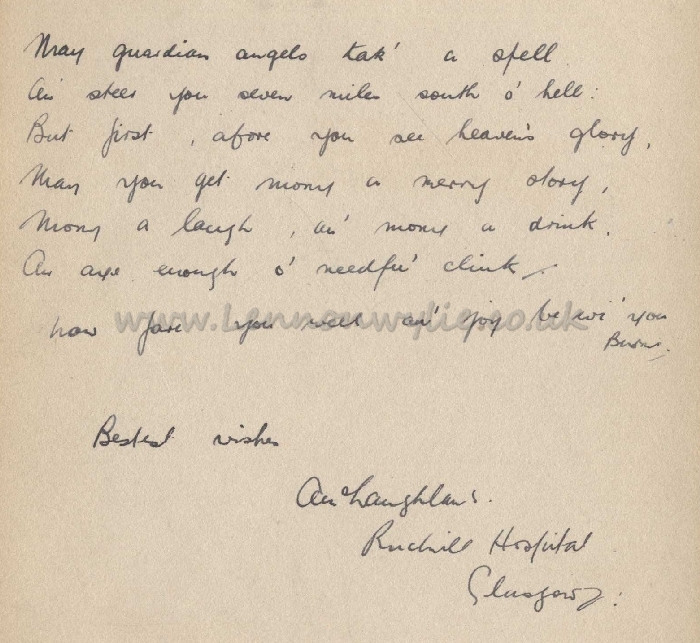 May guardian angels tak' a spell
An' steer you seven miles south o' hell:
But first, afore you see heaven's glory,
May you get mony a merry story,
Mony a laugh, an' mony a drink,
An aye enough o' needfu' clink
www.Lennonwylie.co.uk
now fare you weel an' joy be wi' you
Burns.
Bestest wishes
Ruchill Hospital
Glasgow.